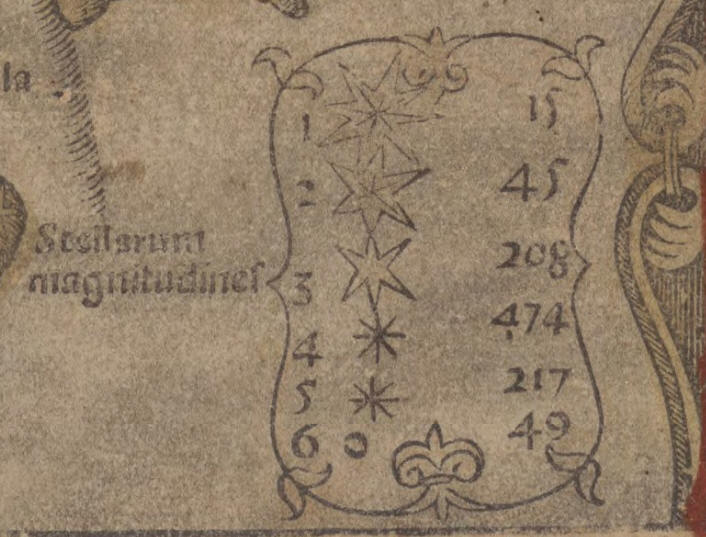 la
Stellarum
magnitudines
1 15
2 45
3 208
4 474
5 217
6 0 49